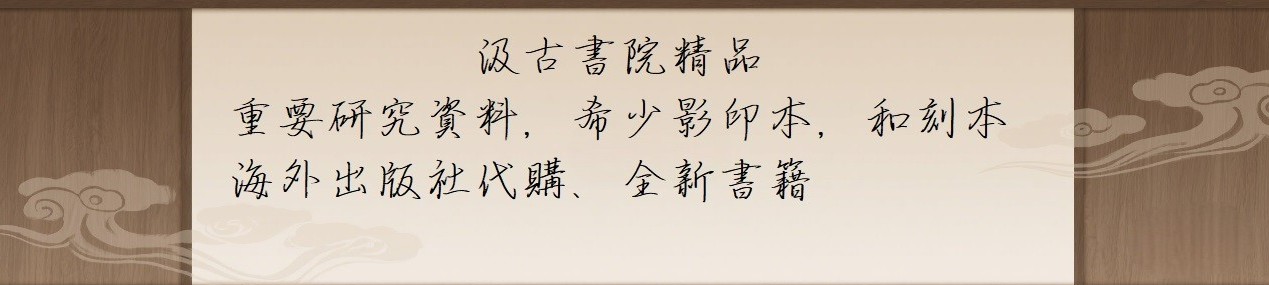 汲古書院精品
重要研究資料，希少影印本，和刻本
海外出版社代購、全新書籍